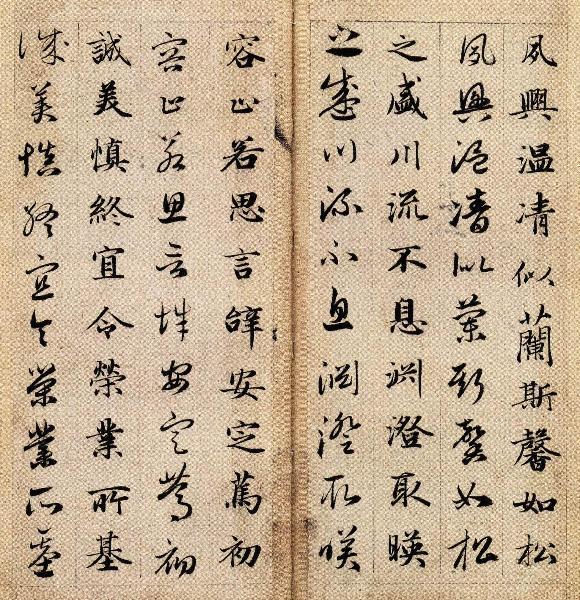 夙興温凊似蘭斯馨如松
夙興温凊似蘭斯馨如松
之盛川流不息淵澄取暎
之盛川流不息淵澄取暎
容止若思言辭安定篤初
容止若思言辭安定篤初
誠美慎終宜令榮業所基
誠美慎終宜令榮業所基